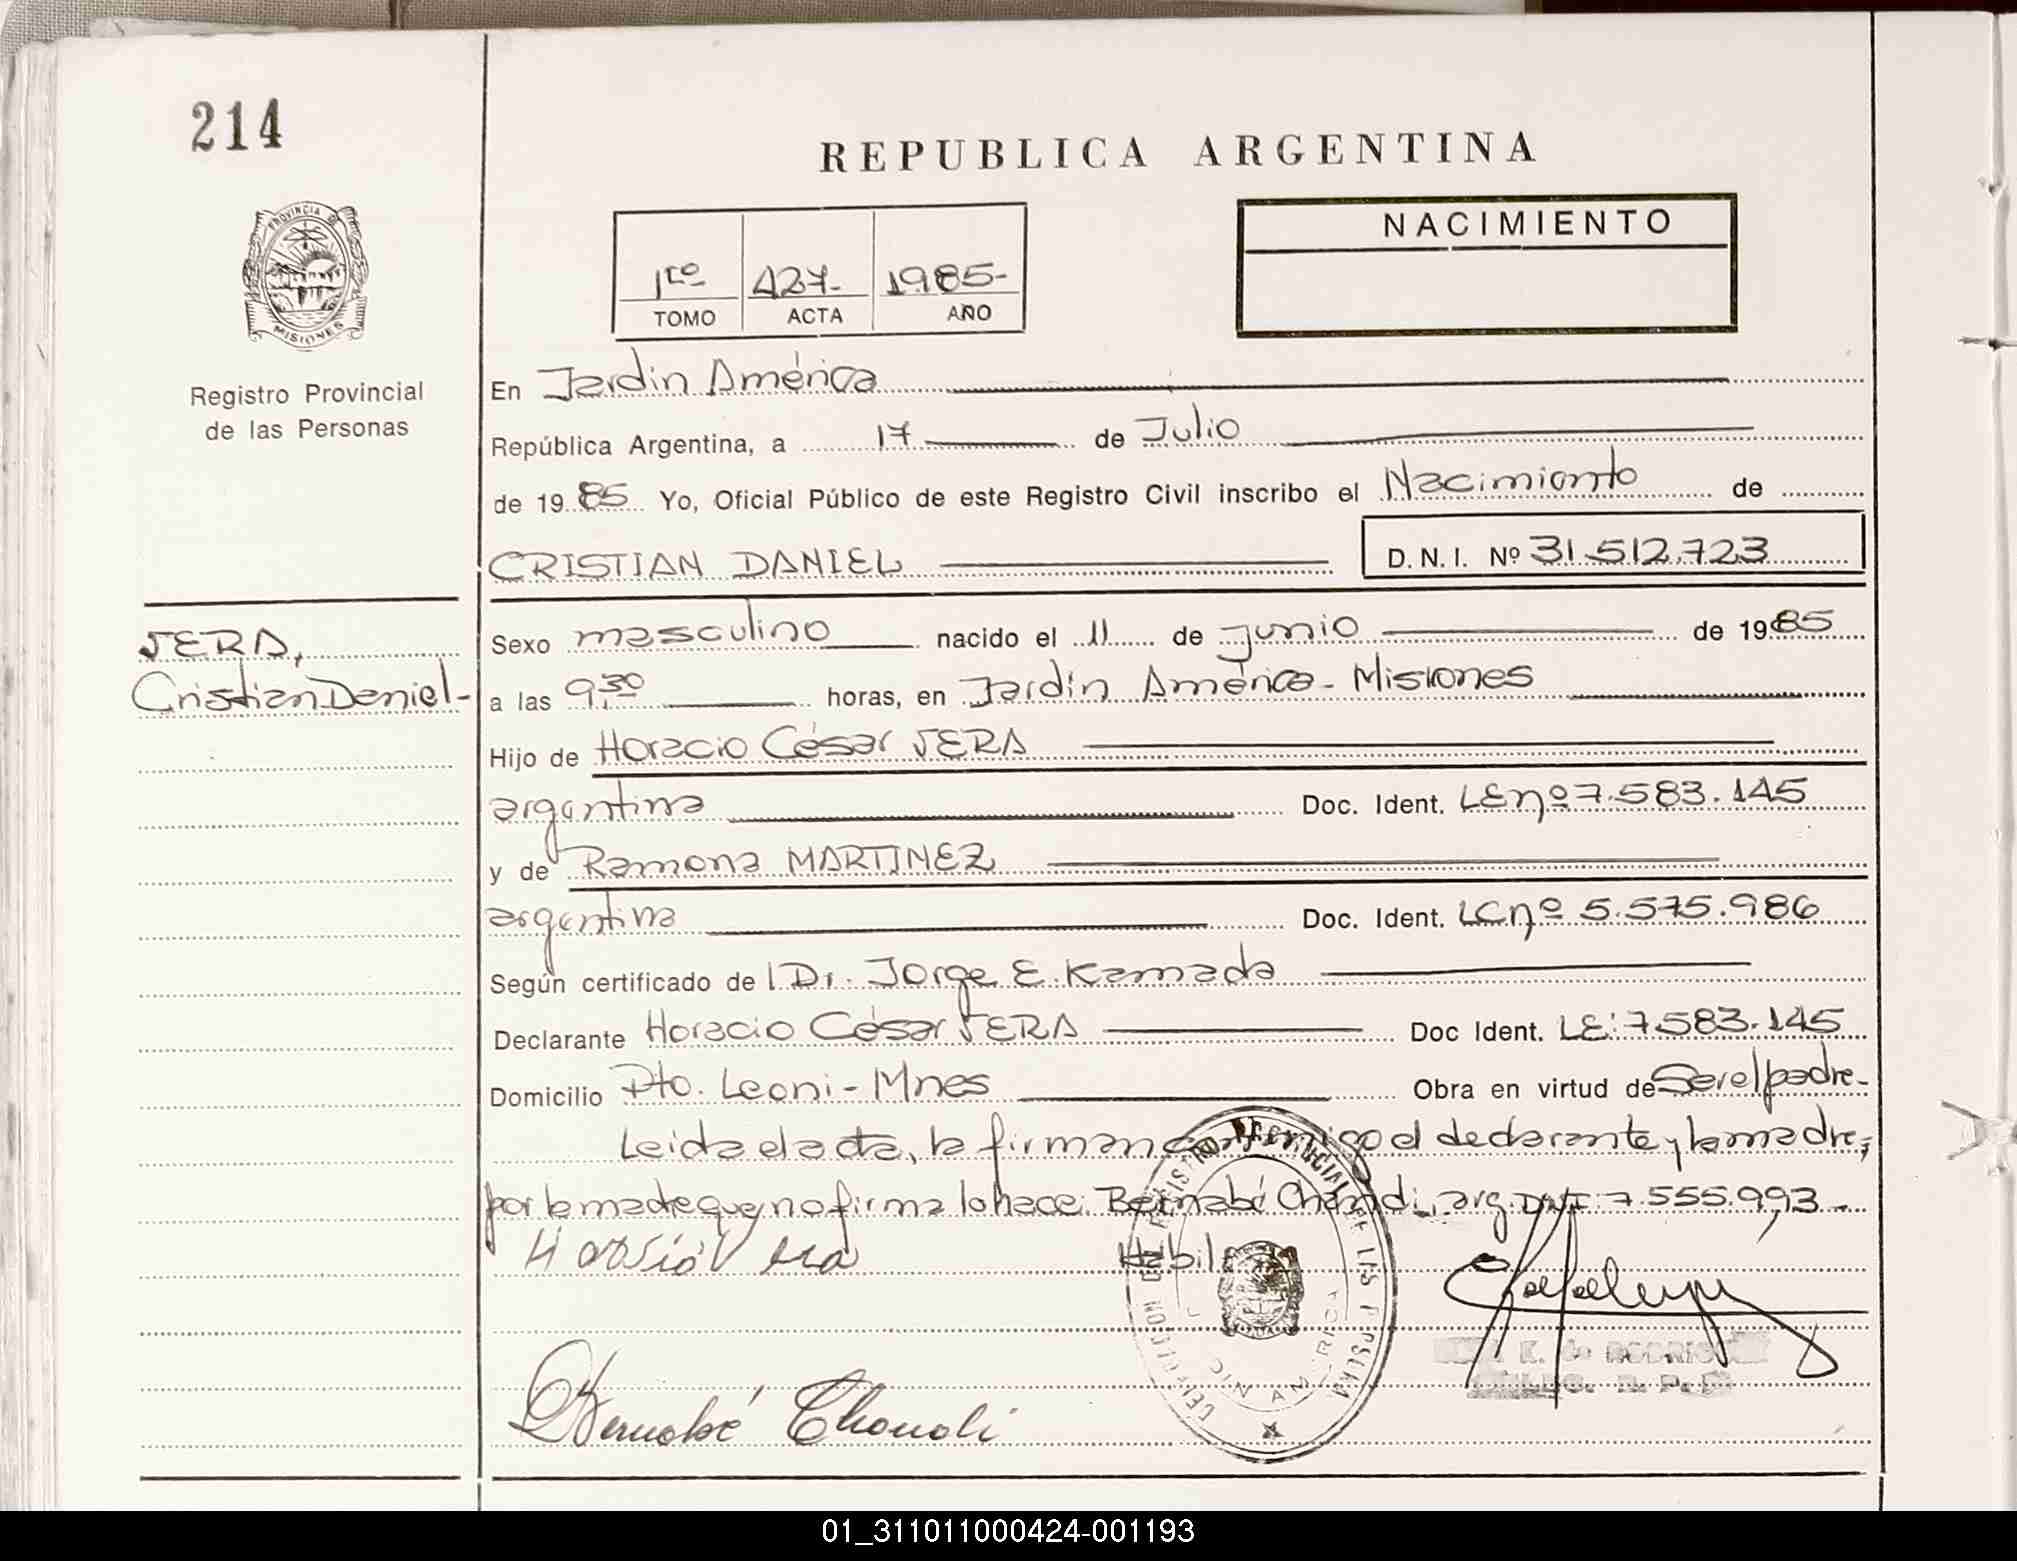 214
REPUBLICA ARGENTINA
PROVINCIA DE
MISIONES
Registro Provincial
de las Personas
1ro 427- 1985-
TOMO ACTA AÑO
NACIMIENTO
En Jardín América
República Argentina, a 17 de Julio
de 1985 Yo, Oficial Público de este Registro Civil inscribo el Nacimiento de
CRISTIAN DANIEL D.N.I. Nº 31.512.723
VERA,
Cristian Daniel-
Sexo masculino nacido el 11 de junio de 1985
a las 9,30 horas, en Jardín América - Misiones
Hijo de Horacio César VERA
argentina Doc. Ident. LE nº 7.583.145
y de Ramona MARTINEZ
argentina Doc. Ident. LC nº 5.575.986
Según certificado de Dr. Jorge E. Kamada
Declarante Horacio César VERA Doc Ident. LE: 7.583.145
Domicilio Pto. Leoni - Mnes Obra en virtud de Ser el padre-
Leida el acta, la firman conmigo el declarante y la madre,
por la madre que no firma lo hace: Bernabé arg. DNI: 7.555.993-
Vera
Bernabé
K. de